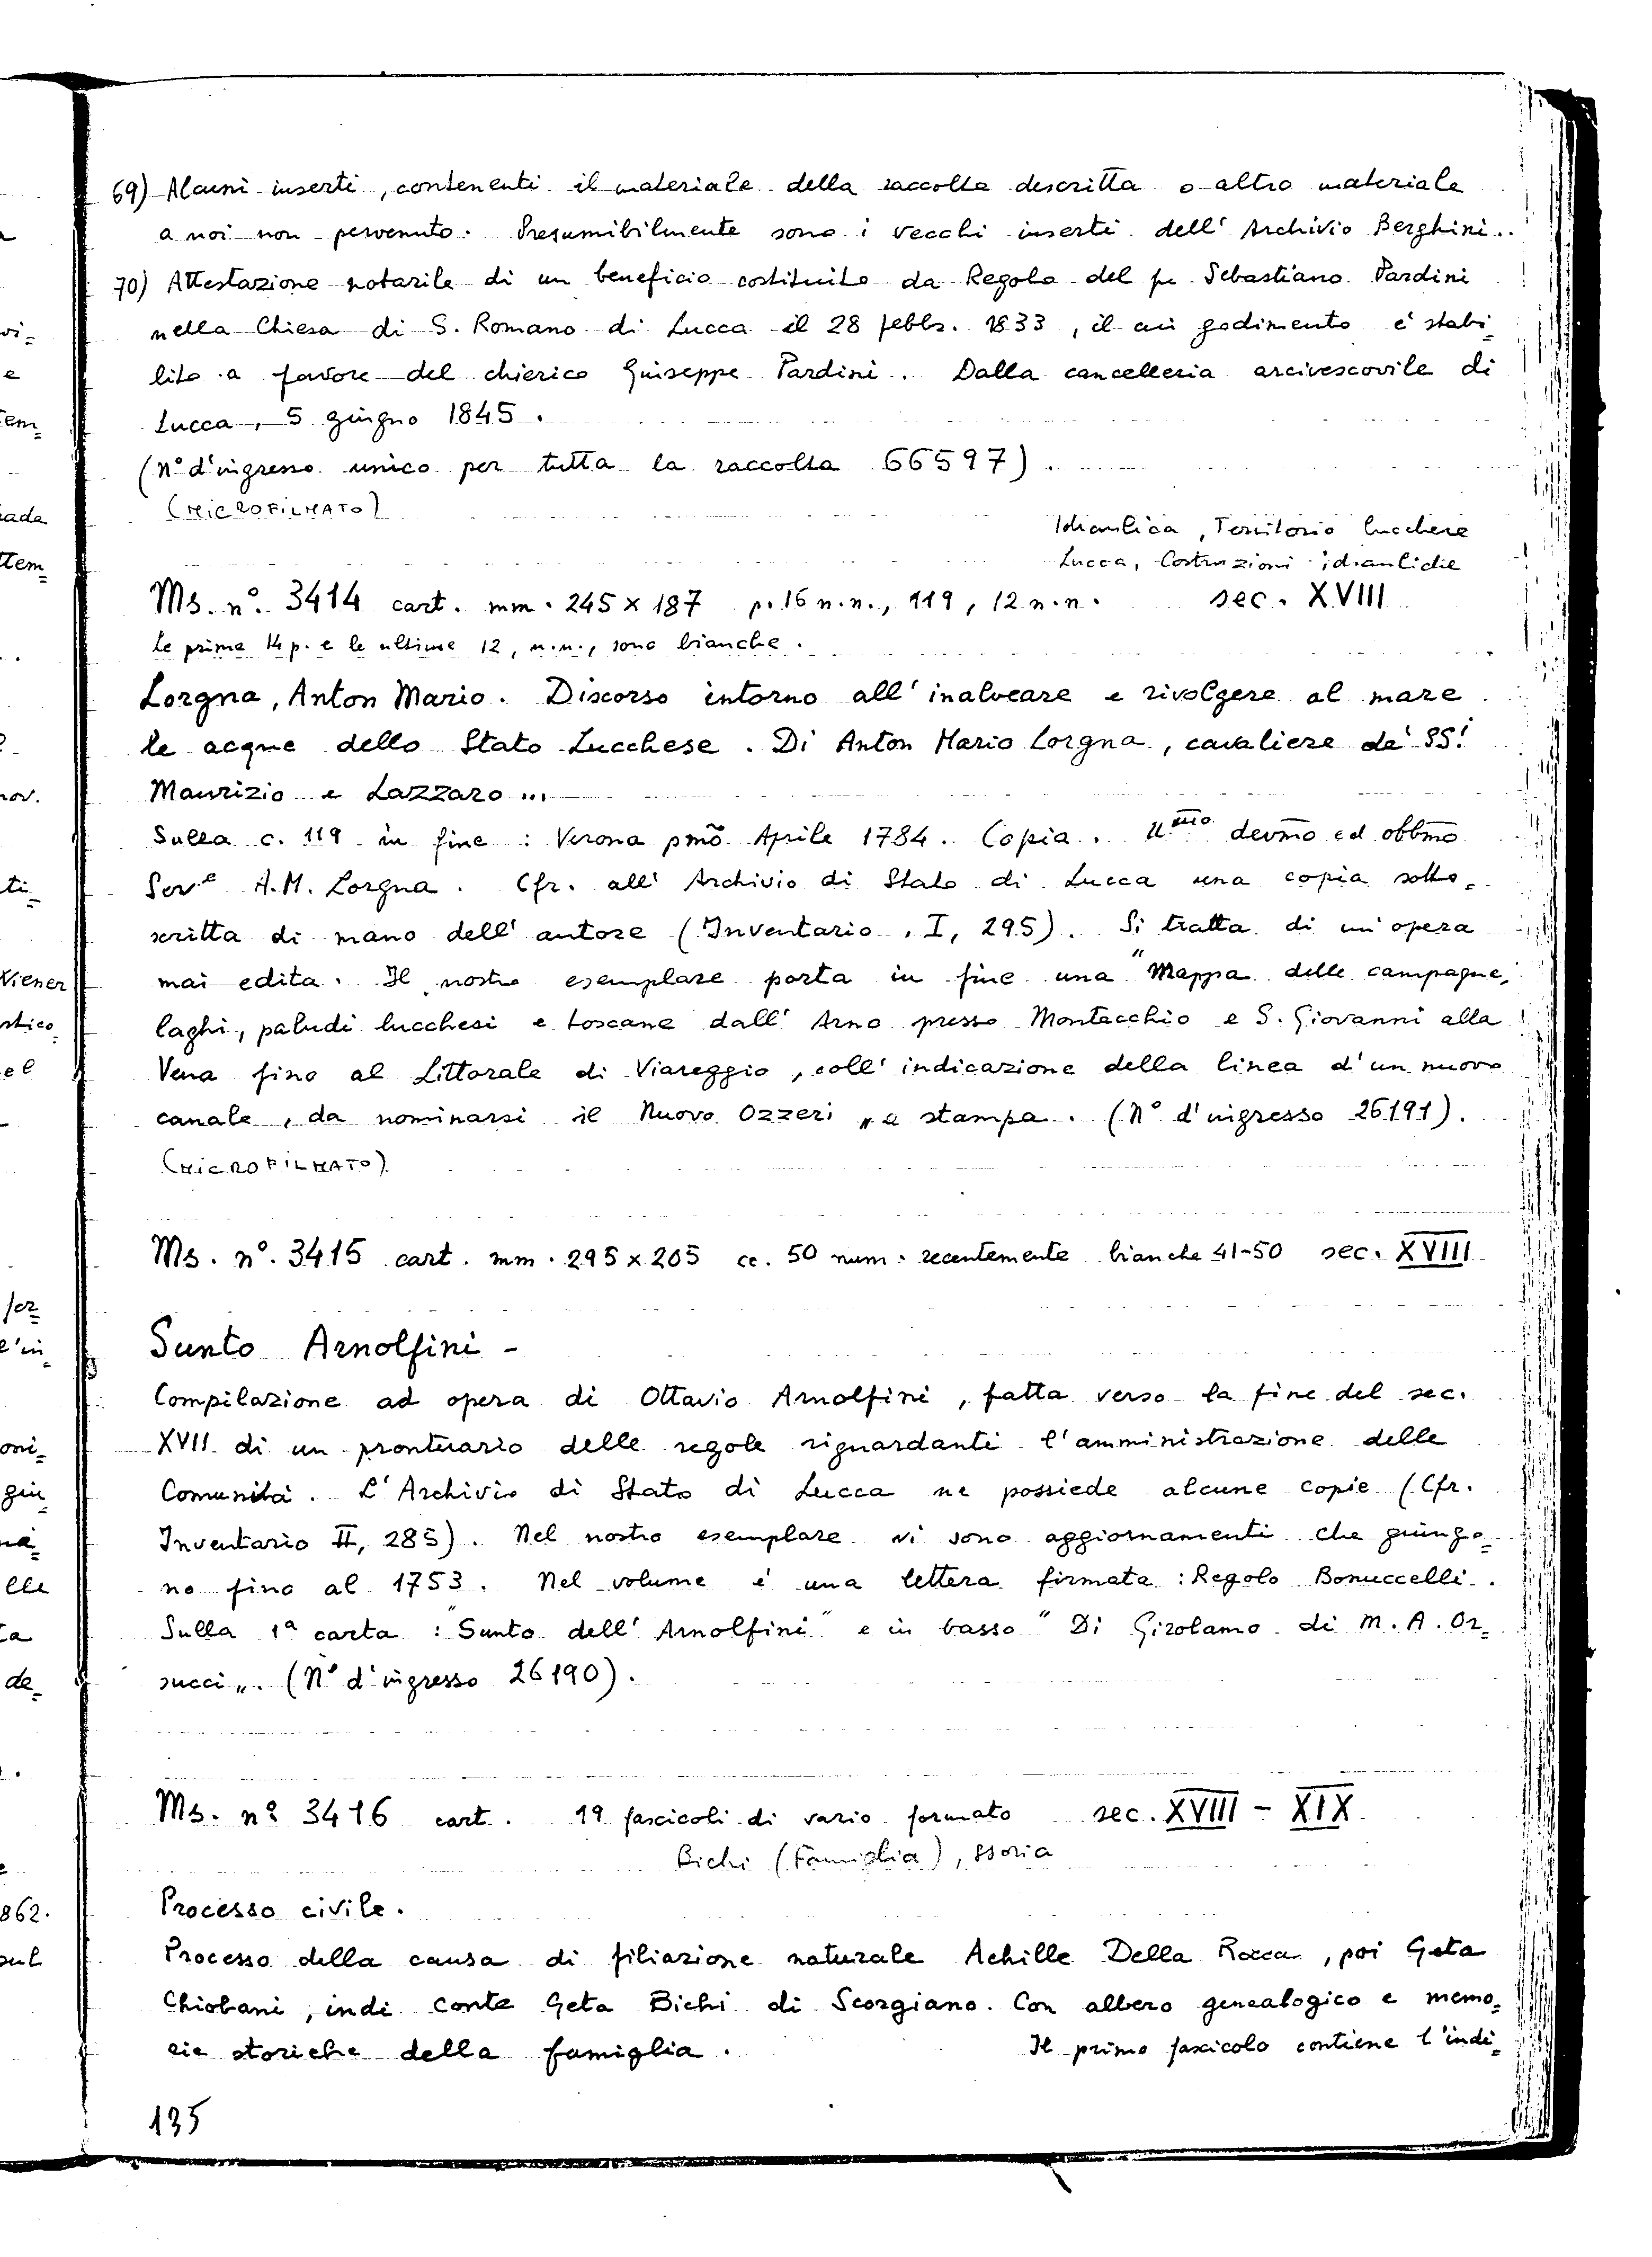 69) Alcuni inserti, contenenti il materiale della raccolta descritta o altro materiale
a noi non pervenuto. Presumibilmente sono i vecchi inserti dell' Archivio Berghini..
70) Attestazione notarile di un beneficio costituito da Regolo del fu Sebastiano Pardini
nella Chiesa di S. Romano di Lucca il 28 febbr. 1833, il cui godimento è stabi=
lito a favore del chierico Giuseppe Pardini. Dalla cancelleria arcivescovile di
Lucca, 5 giugno 1845.
(N° d'ingresso unico per tutta la raccolta 66597).
(MICROFILMATO)
Idraulica, Territorio lucchese
Lucca, Costruzioni idrauliche
Ms. n°. 3414 cart. mm. 245 x 187 p. 16 n.n., 119, 12 n.n. sec. XVIII
Le prime 14 p. e le ultime 12, n.n., sono bianche.
Lorgna, Anton Mario. Discorso intorno all' inalveare e rivolgere al mare
le acque dello Stato Lucchese. Di Anton Mario Lorgna, cavaliere de' SS!
Maurizio e Lazzaro...
Sulla c. 119 in fine : Verona pmõ Aprile 1784. Copia. U.mo devm̃o ed obbm̃o
Serve A.M. Lorgna. Cfr. all' Archivio di Stato di Lucca una copia sotto=
scritta di mano dell' autore (Inventario, I, 295). Si tratta di un'opera
mai edita. Il nostro esemplare porta in fine una "Mappa delle campagne,
laghi, paludi lucchesi e toscane dall' Arno presso Montecchio e S. Giovanni alla
Vena fino al Littorale di Viareggio, coll' indicazione della linea d'un nuovo
canale, da nominarsi il Nuovo Ozzeri„ a stampa. (N° d'ingresso 26191).
(MICROFILMATO)
Ms. n°. 3415 cart. mm. 295 x 205 cc. 50 num. recentemente bianche 41-50 sec. XVIII
Sunto Arnolfini -
Compilazione ad opera di Ottavio Arnolfini, fatta verso la fine del sec.
XVII di un prontuario delle regole riguardanti l'amministrazione delle
Comunità. L'Archivio di Stato di Lucca ne possiede alcune copie (Cfr.
Inventario II, 285). Nel nostro esemplare vi sono aggiornamenti che giungo=
no fino al 1753. Nel volume è una lettera firmata : Regolo Bonuccelli.
Sulla 1ª carta : "Sunto dell' Arnolfini" e in basso "Di Girolamo di M. A. Or=
succi„. (N° d'ingresso 26190).
Ms. n° 3416 cart. 19 fascicoli di vario formato sec. XVIII - XIX
Bichi (Famiglia), storia
Processo civile.
Processo della causa di filiazione naturale Achille Della Rocca, poi Geta
Chiobani, indi conte Geta Bichi di Scorgiano. Con albero genealogico e memo=
rie storiche della famiglia. Il primo fascicolo contiene l'indi=
135